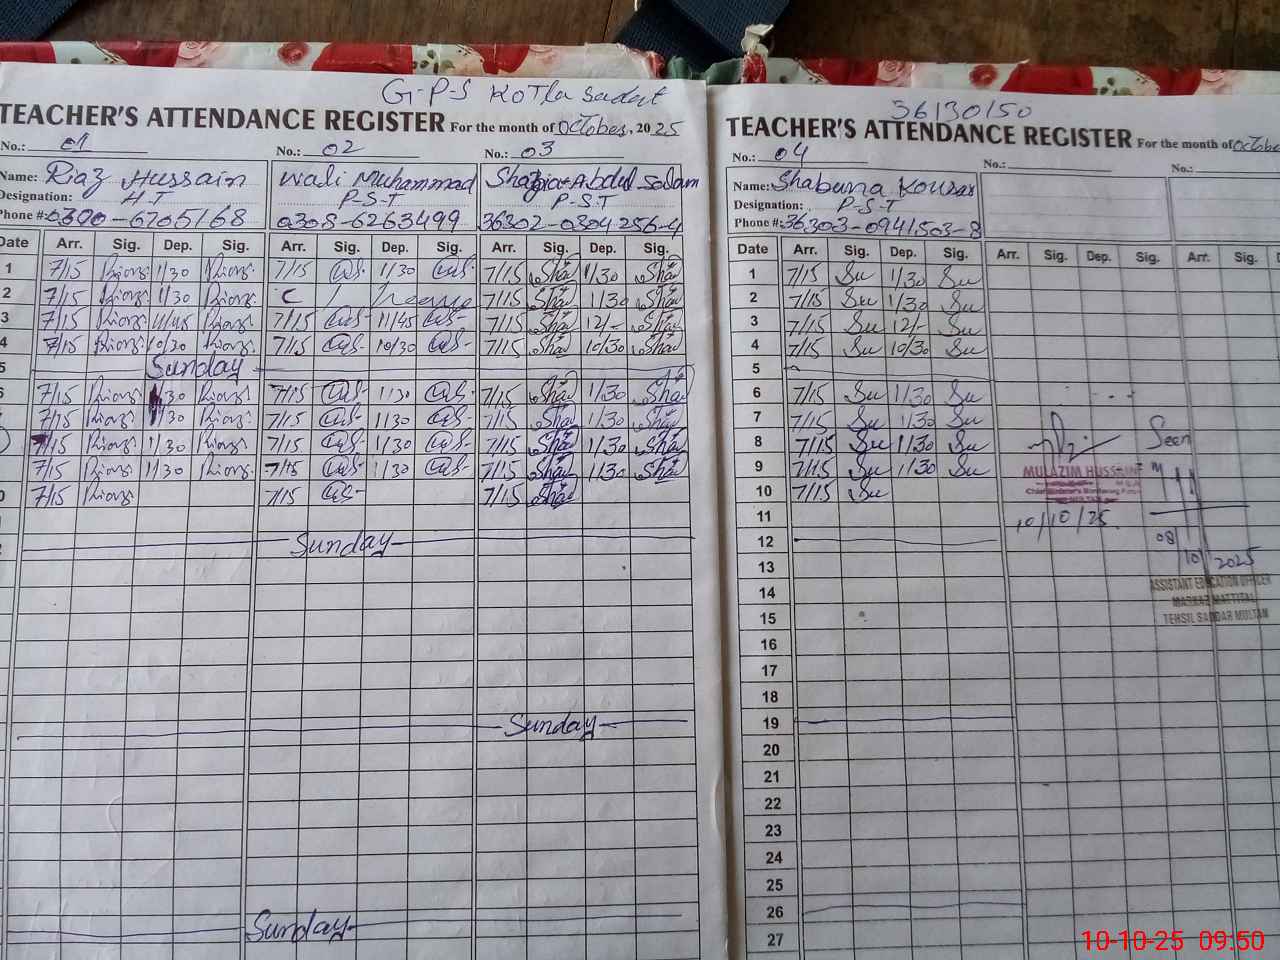 G-P-S Kotla Sadat
TEACHER'S ATTENDANCE REGISTER For the month of October, 2025
No.: 01 No.: 02 No.: 03
Name: Riaz Hussain Wali Muhammad Shazia Abdul Salam
Designation: H.T P-S-T P-S-T
Phone #: 0300-6705168 0308-6263499 36302-0304256-4
Date Arr. Sig. Dep. Sig. Arr. Sig. Dep. Sig. Arr. Sig. Dep. Sig.
1 7/15 1/30 7/15 1/30 7/15 Sha 1/30 Sha
2 7/15 1/30 C / Leave 7/15 Sha 1/30 Sha
3 7/15 11/45 7/15 11/45 7/15 Sha 12/- Sha
4 7/15 10/30 7/15 10/30 7/15 Sha 10/30 Sha
5 Sunday
6 7/15 1/30 7/15 1/30 7/15 Sha 1/30 Sha
7/15 1/30 7/15 1/30 7/15 Sha 1/30 Sha
7/15 1/30 7/15 1/30 7/15 Sha 1/30 Sha
7/15 1/30 7/15 1/30 7/15 Sha 1/30 Sha
0 7/15 7/15 7/15 Sha
Sunday
Sunday
Sunday
36130150
TEACHER'S ATTENDANCE REGISTER For the month of Octobe
No.: 04 No.: No.:
Name: Shabana Kousar
Designation: P-S-T
Phone #: 36303-0941503-8
Date Arr. Sig. Dep. Sig. Arr. Sig. Dep. Sig. Arr. Sig. D
1 7/15 Su 1/30 Su
2 7/15 Su 1/30 Su
3 7/15 Su 12/- Su
4 7/15 Su 10/30 Su
5
6 7/15 Su 1/30 Su
7 7/15 Su 1/30 Su
8 7/15 Su 1/30 Su Seen
9 7/15 Su 1/30 Su MULAZIM HUSSAIN
10 7/15 Su MULTAN
11 10/10/25
12 08
13 10 2025
14 ASSISTANT EDUCATION OFFICER
MARKAZ MATTITAL
15 TEHSIL SADDAR MULTAN
16
17
18
19
20
21
22
23
24
25
26
27
10-10-25 09:50